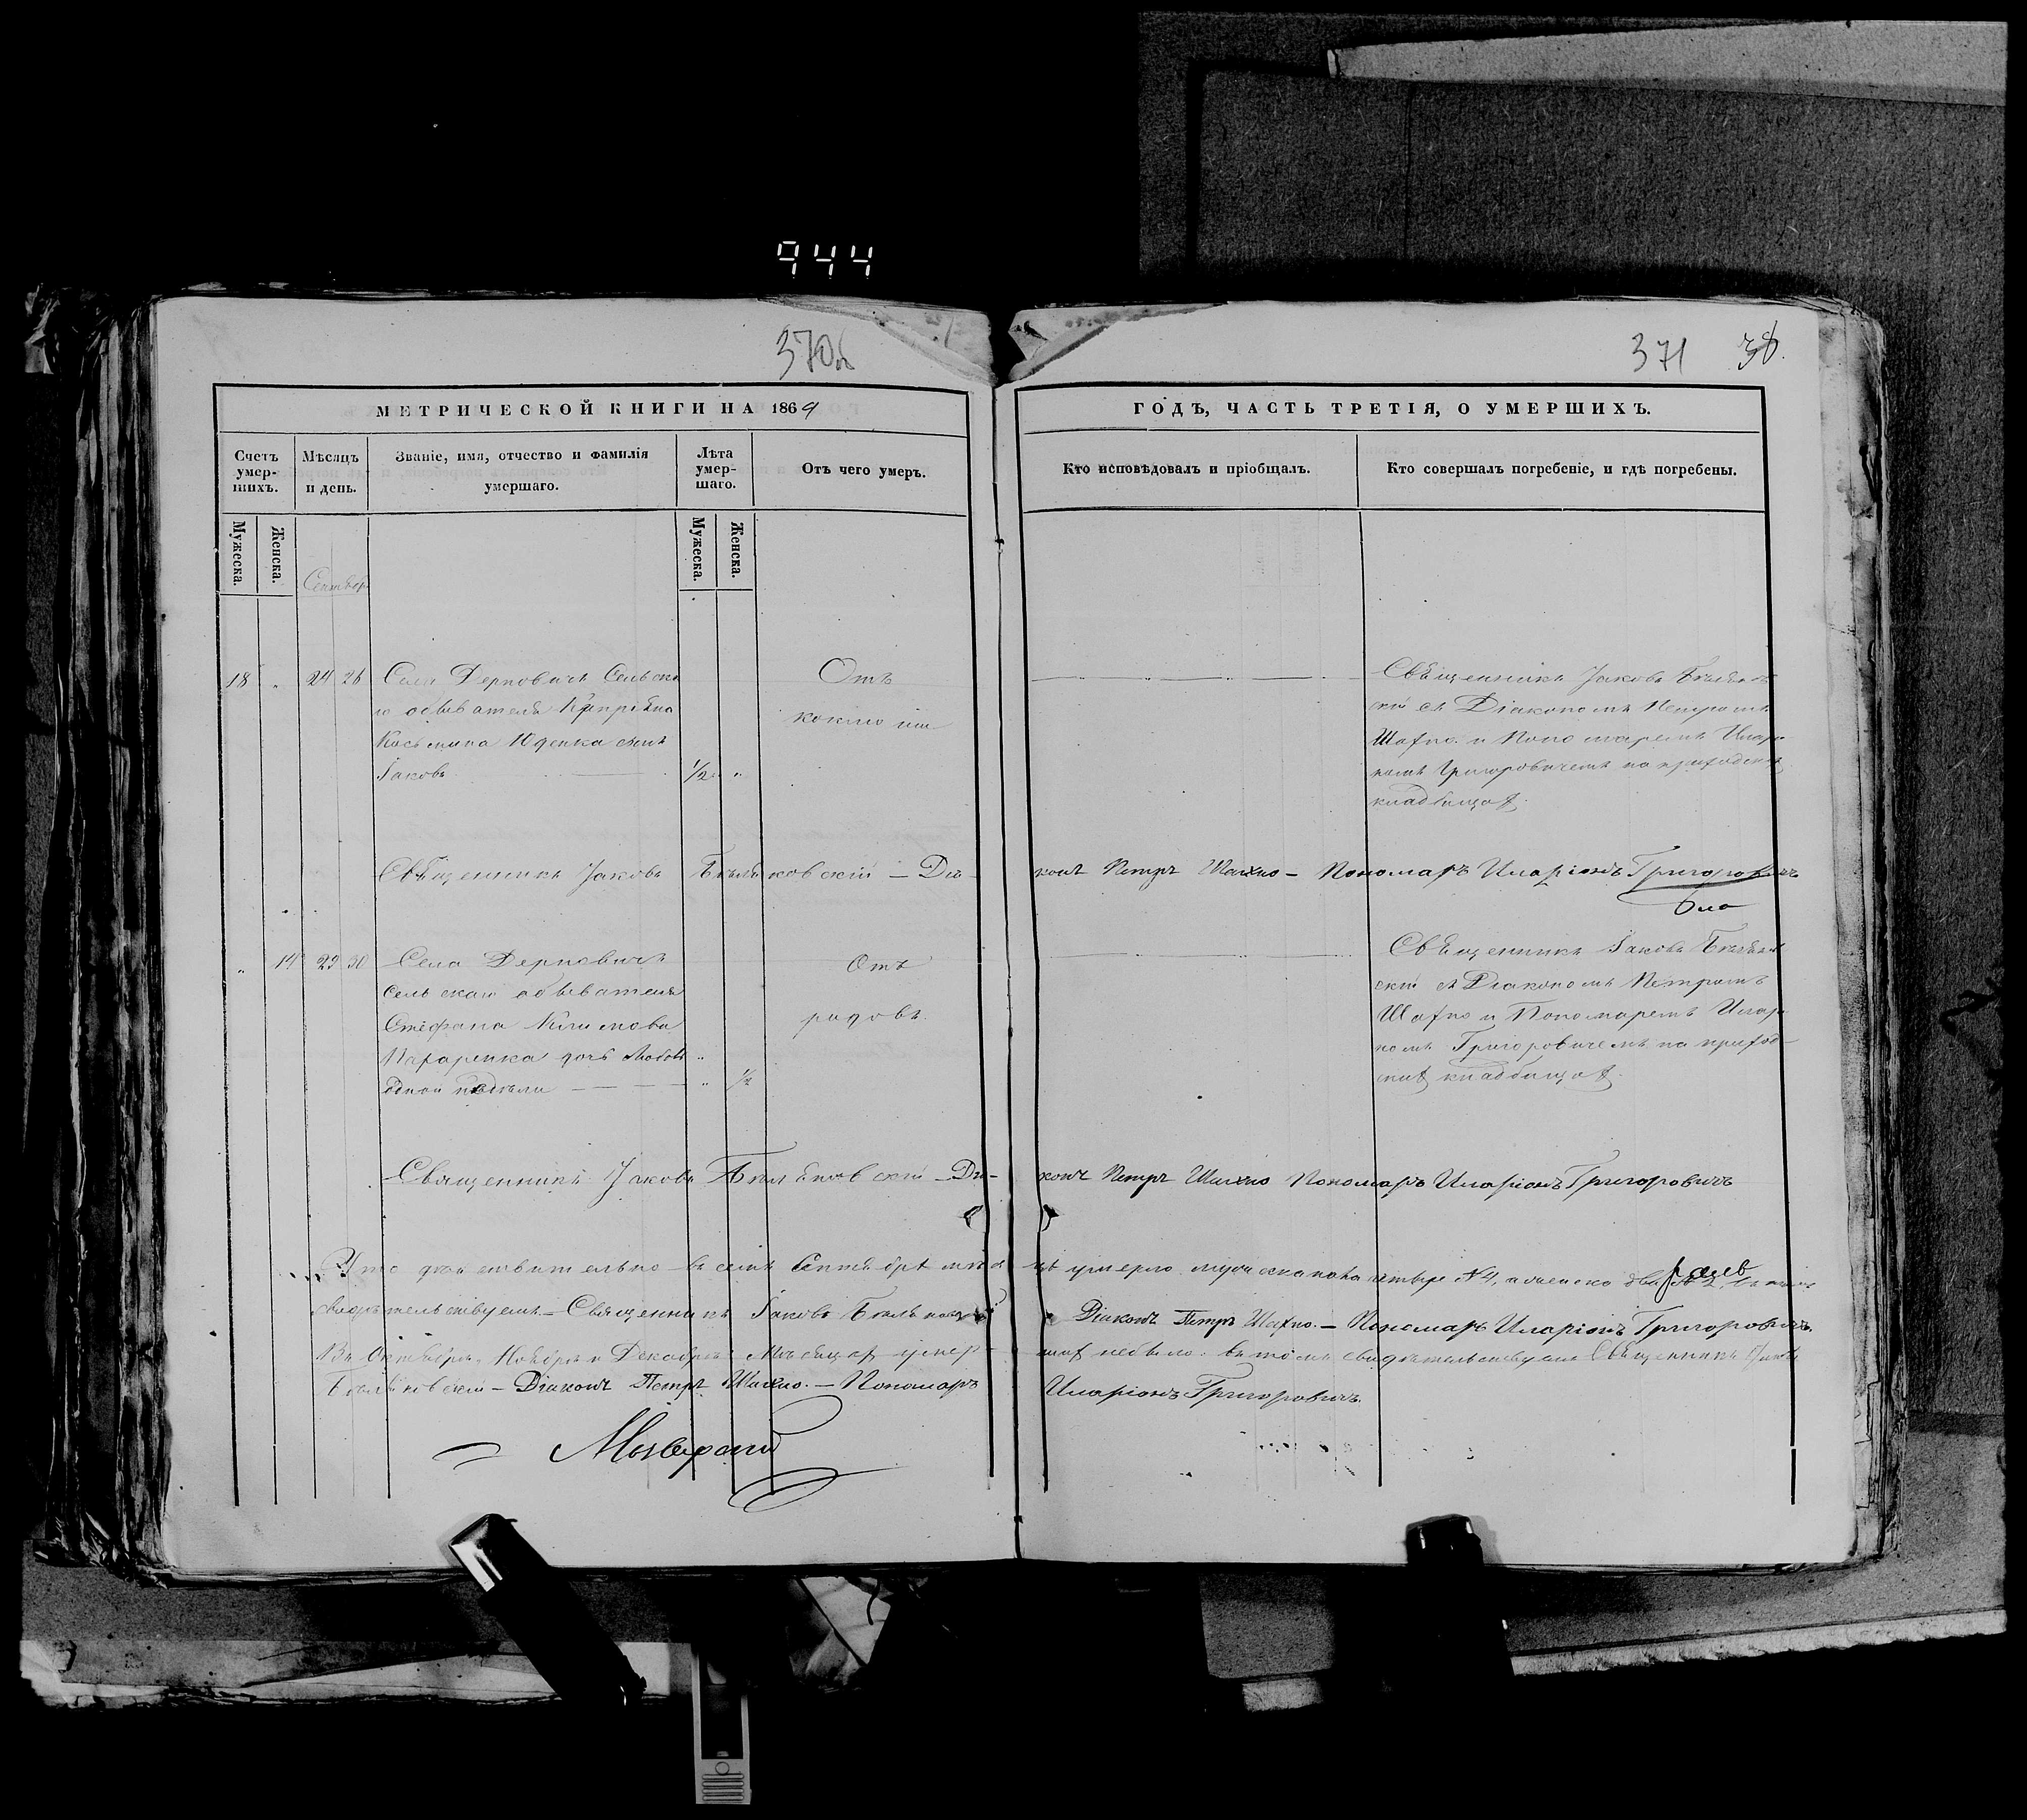 944
370об
371 38.
МЕТРИЧЕСКОЙ КНИГИ НА 1869
ГОДЪ, ЧАСТЬ ТРЕТІЯ, О УМЕРШИХЪ.
Счетъ умер-шихъ.
Мѣсяцъ и день.
Званіе, имя, отчество и фамилія умершаго.
Лѣта умер-шаго.
Отъ чего умеръ.
Кто исповѣдовалъ и пріобщалъ.
Кто совершалъ погребеніе, и гдѣ погребены.
Мужеска.
Женска.
Мужеска.
Женска.
Сентябр
18 " 24 26
Села Дерновичъ Сельска
го обывателя Кипріяна
Косьмина Юденка сынъ
Іаковъ 1/2 "
Отъ
коклюша
Священникъ Іаковъ
скій съ Діакономъ Петромъ
Шахно и Пономаремъ Илар
номъ Григоровичемъ на приходск
кладбищѣ.
Священникъ Іаковъ Бѣлиновскій – Діа-
конъ Петръ Шахно – Пономаръ Иларіонъ Григоровичъ
" 14 29 30
Села Дерновичъ
сельскаго обывателя
Стефана Климова
дочь Любовь "
одной недѣли " 1/2
Отъ
родовъ.
Священникъ Іаковъ
скій съ Діакономъ Петромъ
Шахно и Пономаремъ Илар
номъ Григоровичемъ на приход-
скомъ кладбищѣ.
Священникъ Іаковъ Бѣлиновскій – Діа-
конъ Петръ Шахно Пономаръ Иларіонъ Григоровичъ
Что действительно въ семъ Сентябрѣ мѣся
цѣ умерло мужеска пола четыре № 4, а женска два № 2 въ томъ
свидѣтельствуемъ – Священникъ Іаковъ
Діаконъ Петръ Шахно. – Пономаръ Иларіонъ Григоровичъ.
Въ Октябрѣ, Ноябрѣ и Декабрѣ Мѣсяцахъ умер-
шихъ небыло. въ томъ свидѣтельствуемъ Священникъ Іаковъ
Бѣлиновскій – Діаконъ Петръ Шахно. – Пономаръ
Иларіонъ Григоровичъ.